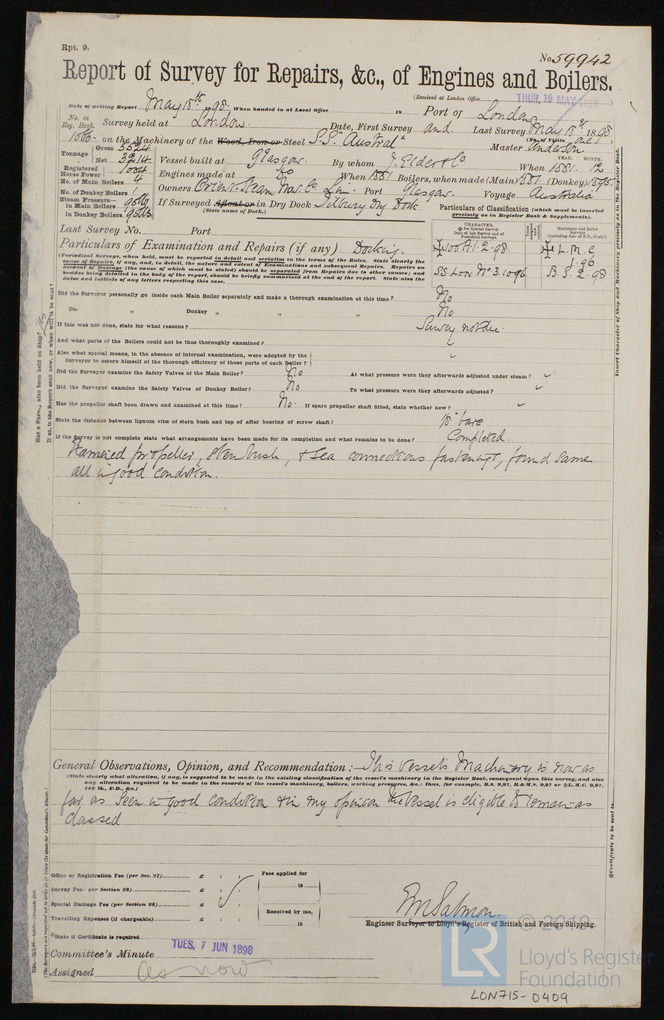 Rpt. 9.
No. 59942
Report of Survey for Repairs, &c., of Engines and Boilers.
(Received at London Office THUR, 19 MAY 1898 )
Date of writing Report May 18th 98, When handed in at Local Office 18 Port of London
No. in Reg. Book. Survey held at London. Date, First Survey and Last Survey May 18th 1898
(No. of Visits one)
on the Machinery of the Wood, Iron or Steel S.S. "Austral" Master Anderson
Tonnage Gross 5524
Net 3214
Vessel built at Glasgow. By whom J. Elder & Co When 1881. 12
YEAR. MONTH.
Registered Horse Power 1004
Engines made at do When 1881 Boilers, when made (Main) 1881 (Donkey) 1895
No. of Main Boilers 4
No. of Donkey Boilers 1
Owners Orient Steam Nav. Co Lim. Port Glasgow. Voyage Australia
Steam Pressure in Main Boilers 95 lb
in Donkey Boilers 95 lbs
If Surveyed Afloat or in Dry Dock Tilbury Dry Dock
(State name of Dock.)
Particulars of Classification (which must be inserted precisely as in Register Book & Supplements).
Last Survey No. Port
Particulars of Examination and Repairs (if any) Docking.
(Periodical Surveys, when held, must be reported in detail and seriatim in the terms of the Rules. State clearly the cause of Repairs, if any, and, in detail, the nature and extent of Examinations and subsequent Repairs. Repairs on account of Damage (the cause of which must be stated) should be separated from Repairs due to other causes; and besides being detailed in the body of the report, should be briefly summarised at the end of the report. State also the dates and initials of any letters respecting this case.
CHARACTER.
100A1. 2.98
SS Lon No 3. 10.96
L.M.C
1.96
B.S. 2.98
Did the Surveyor personally go inside each Main Boiler separately and make a thorough examination at this time? No
Do. " Donkey " " " " No
If this was not done, state for what reasons? Survey not due.
And what parts of the Boilers could not be thoroughly examined? "
Also what special means, in the absence of internal examination, were adopted by the Surveyor to assure himself of the thorough efficiency of these parts of each Boiler? "
Did the Surveyor examine the Safety Valves of the Main Boiler? No At what pressure were they afterwards adjusted under steam? "
Did the Surveyor examine the Safety Valves of Donkey Boiler? No To what pressure were they afterwards adjusted? "
Has the propeller shaft been drawn and examined at this time? No. If spare propeller shaft fitted, state whether new? "
State the distance between lignum vitæ of stern bush and top of after bearing of screw shaft? 1/8" bare
If the Survey is not complete state what arrangements have been made for its completion and what remains to be done? Completed.
Examined propeller, stern bush, & sea connections fastenings, found same
all in good condition.
General Observations, Opinion, and Recommendation:— This vessels Machinery is now as
(State clearly what alteration, if any, is suggested to be made in the existing classification of the vessel's machinery in the Register Book, consequent upon this survey, and also any alteration required to be made in the records of the vessel's machinery, boilers, working pressures, &c.: thus, for example, B.S. 9,97, B & M.S. 9,97 or L.M.C. 9,97, 140 lb., F.D., &c.)
far as seen in good condition & in my opinion the vessel is eligible to remain as
classed
Office or Registration Fee (per Sec. 27) £ : :
Survey Fee (per Section 28) £ : :
Special Damage Fee (per Section 28) £ : :
Travelling Expenses (if chargeable) £ : :
Fees applied for
18
Received by me,
18
E M Salmon.
Engineer Surveyor to Lloyd's Register of British and Foreign Shipping.
*State if Certificate is required
Committee's Minute TUES, 7 JUN 1898
Assigned as now
© 2019
LR
Lloyd's Register
Foundation
LON715-0409
Insert Character of Ship and Machinery precisely as in the Register Book.